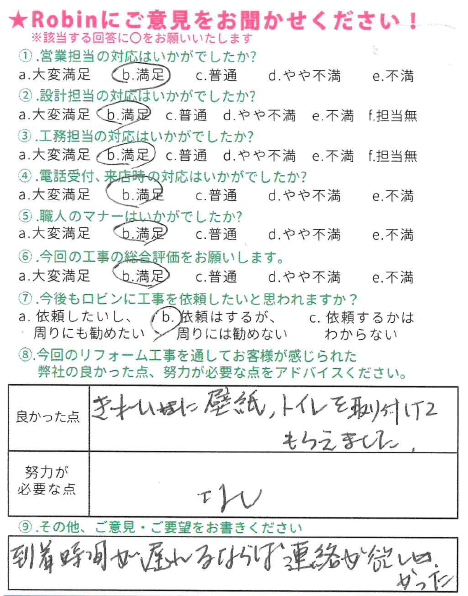 ★Robinにご意見をお聞かせください！
※該当する回答に〇をお願いいたします
①.営業担当の対応はいかがでしたか?
a.大変満足 b.満足 c.普通 d.やや不満 e.不満
②.設計担当の対応はいかがでしたか?
a.大変満足 b.満足 c.普通 d.やや不満 e.不満 f.担当無
③.工務担当の対応はいかがでしたか?
a.大変満足 b.満足 c.普通 d.やや不満 e.不満 f.担当無
④.電話受付、来店時の対応はいかがでしたか?
a.大変満足 b.満足 c.普通 d.やや不満 e.不満
⑤.職人のマナーはいかがでしたか?
a.大変満足 b.満足 c.普通 d.やや不満 e.不満
⑥.今回の工事の総合評価をお願いします。
a.大変満足 b.満足 c.普通 d.やや不満 e.不満
⑦.今後もロビンに工事を依頼したいと思われますか？
a. 依頼したいし、 b. 依頼はするが、 c. 依頼するかは
周りにも勧めたい 周りには勧めない わからない
⑧.今回のリフォーム工事を通してお客様が感じられた
弊社の良かった点、努力が必要な点をアドバイスください。
良かった点
きれいに壁紙,トイレを取り付けて
もらえました.
努力が
必要な点
なし
⑨.その他、ご意見・ご要望をお書きください
到着時間が遅れるならば連絡が欲し
かった